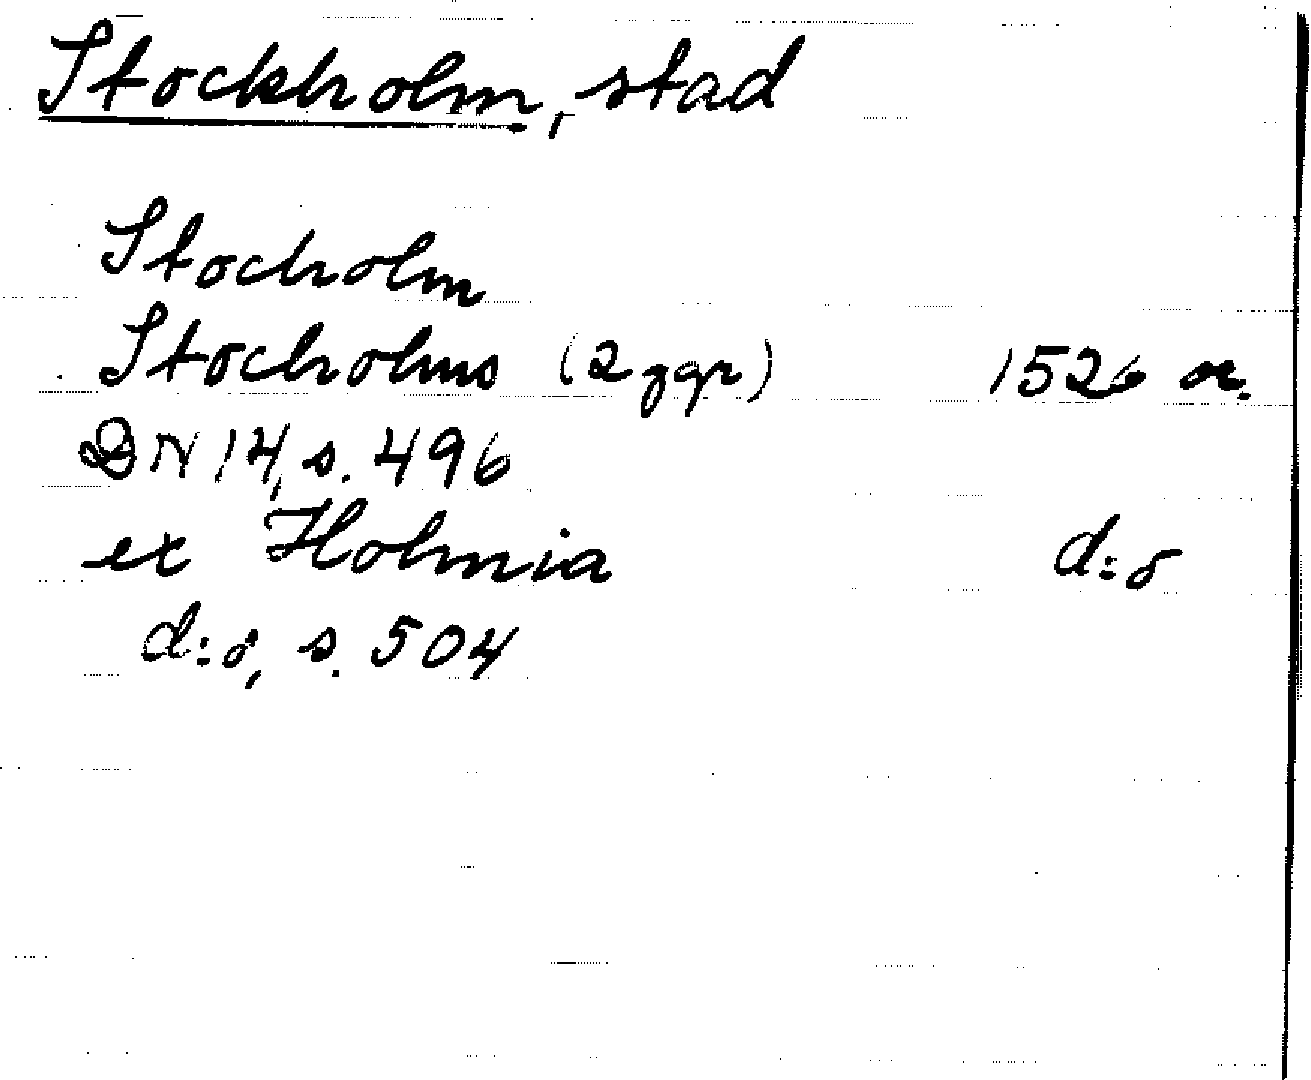 Stockholm, stad
Stocholm
Stocholms (2 ggr) 1526 or.
DN 14, s. 496
ex Holmia d:o
d:o, s. 504